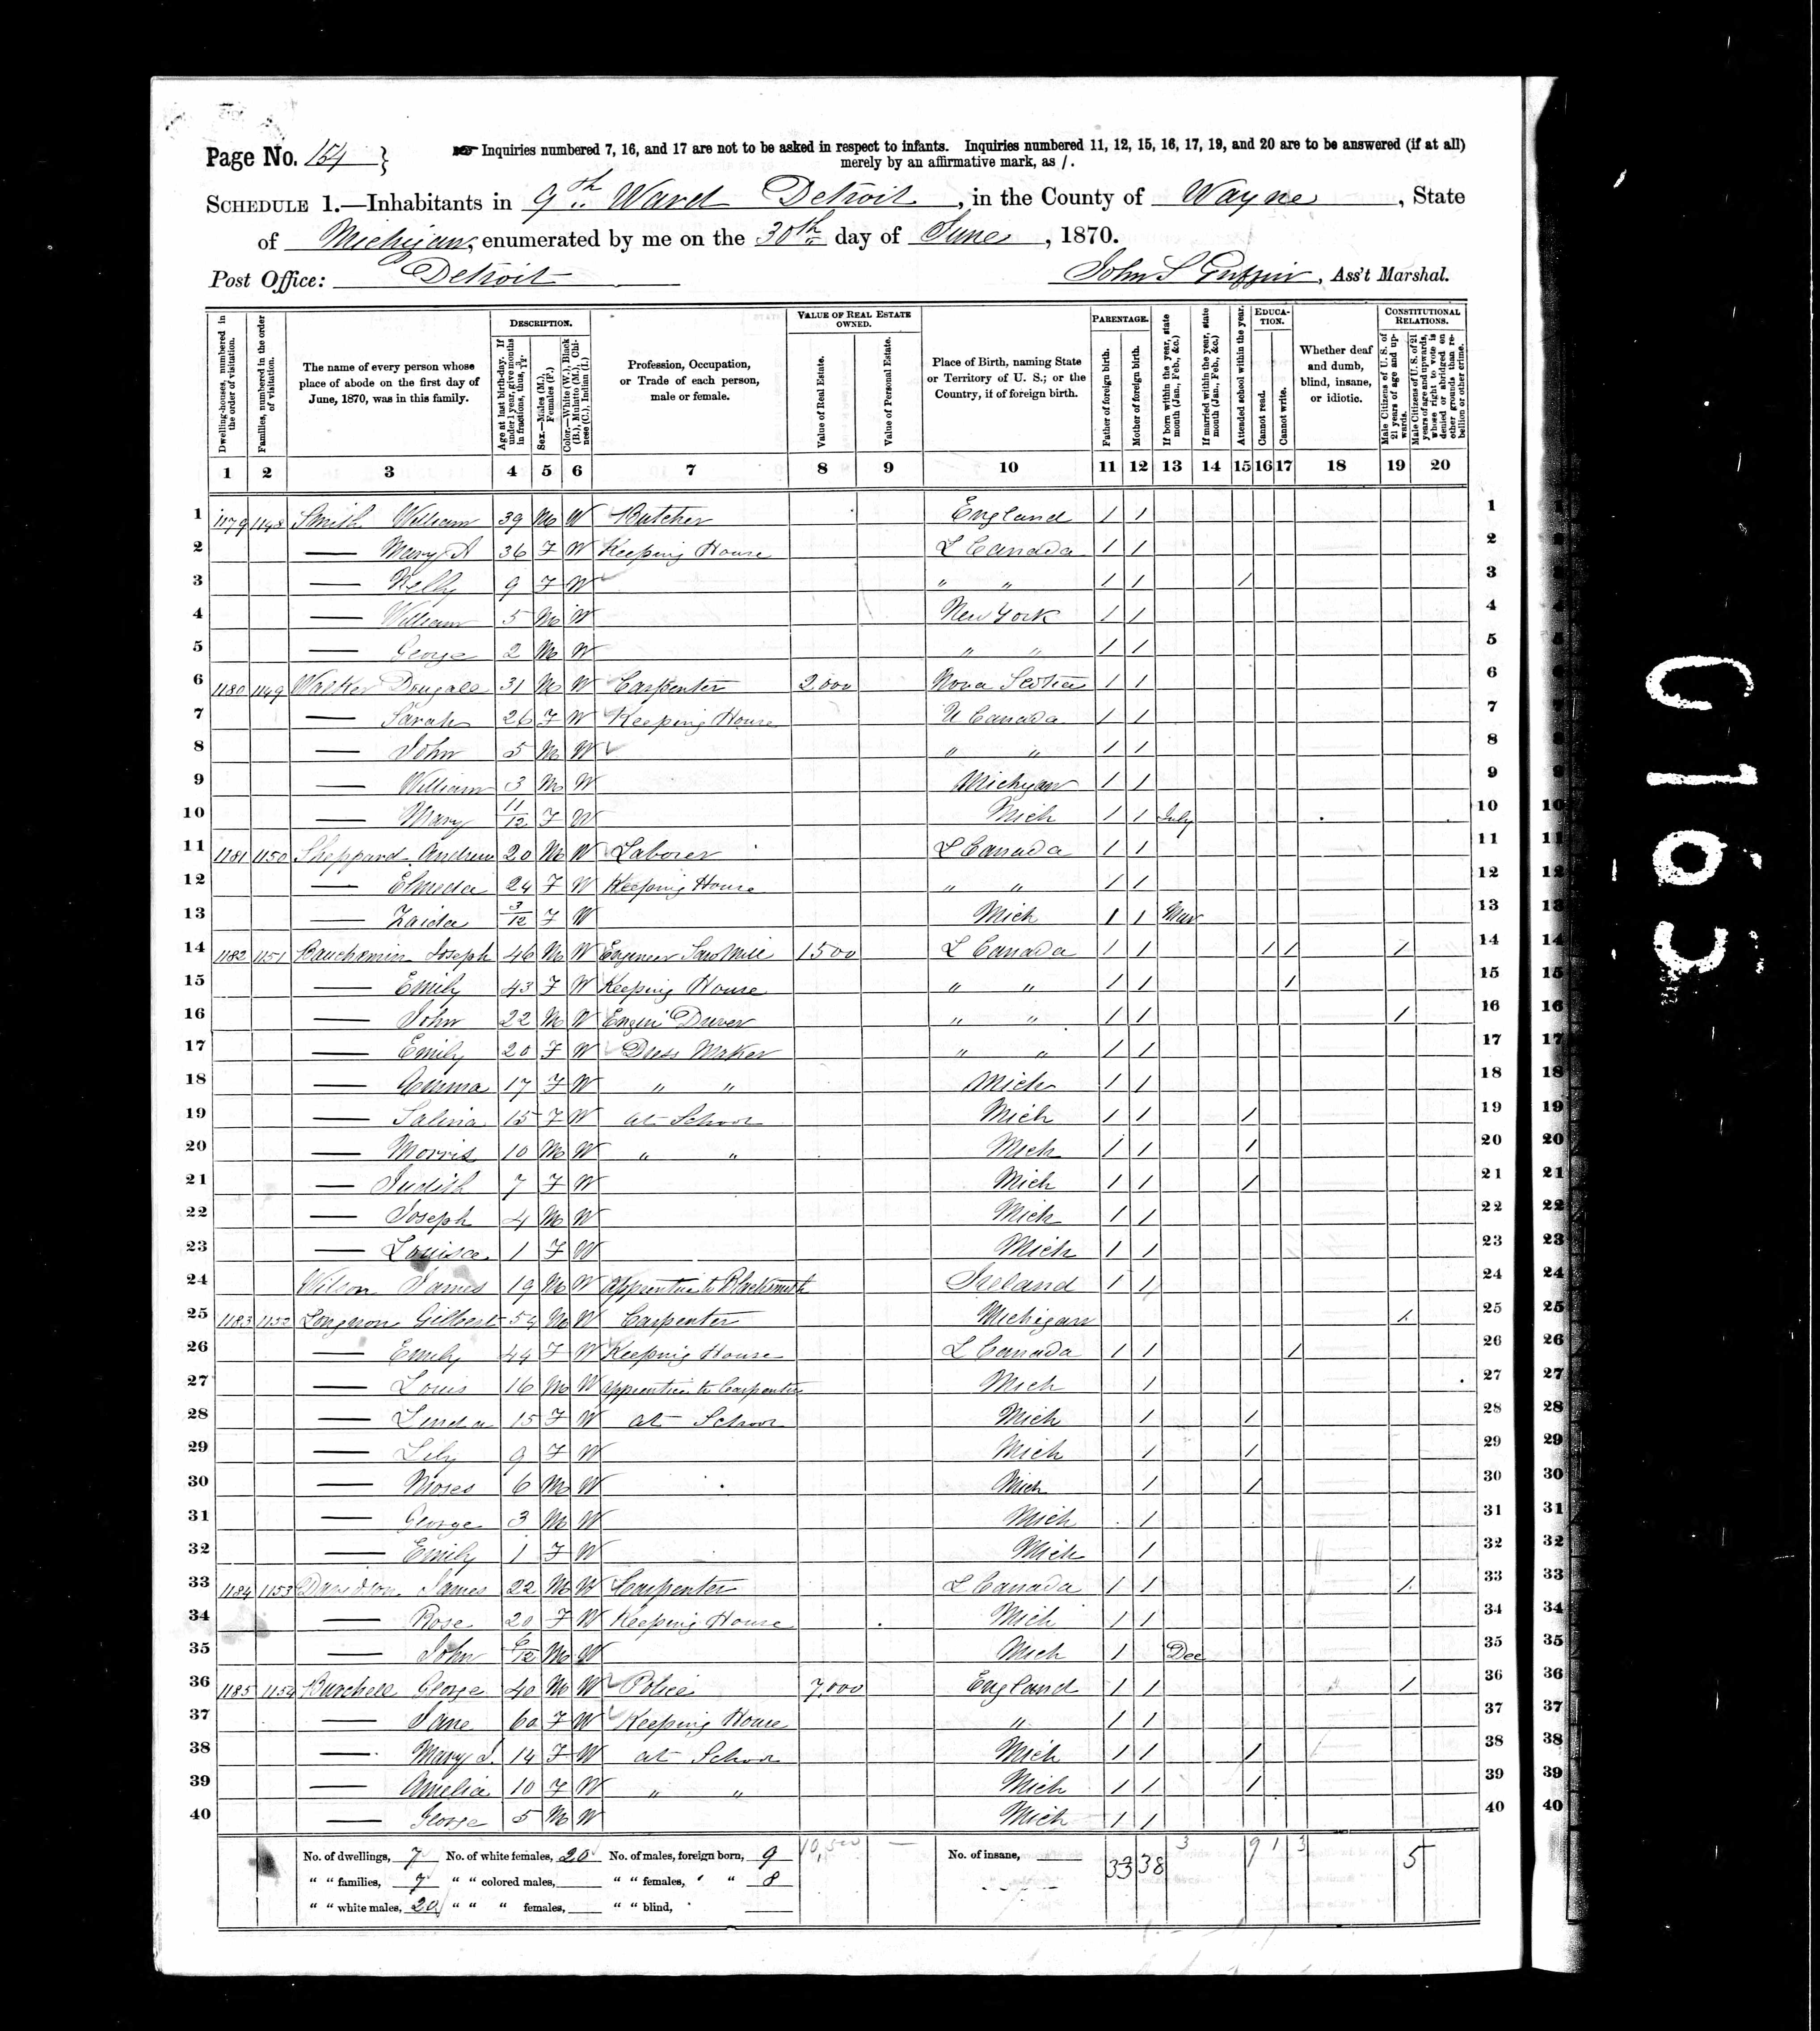 Page No. 154 }
Inquiries numbered 7, 16, and 17 are not to be asked in respect to infants. Inquiries numbered 11, 12, 15, 16, 17, 19, and 20 are to be answered (if at all)
merely by an affirmative mark, as /.
SCHEDULE 1.—Inhabitants in 9th Ward Detroit, in the County of Wayne, State
of Michigan, enumerated by me on the 30th day of June, 1870.
Post Office: Detroit John S Griffin, Ass't Marshal.
Dwelling-houses, numbered in the order of visitation.
Families, numbered in the order of visitation.
The name of every person whose place of abode on the first day of June, 1870, was in this family.
DESCRIPTION.
Age at last birth-day. If under 1 year, give months in fractions, thus, 3/12.
Sex.—Males (M.), Females (F.)
Color.—White (W.), Black (B.), Mulatto (M.), Chinese (C.), Indian (I.)
Profession, Occupation, or Trade of each person, male or female.
VALUE OF REAL ESTATE OWNED.
Value of Real Estate.
Value of Personal Estate.
Place of Birth, naming State or Territory of U. S.; or the Country, if of foreign birth.
PARENTAGE.
Father of foreign birth.
Mother of foreign birth.
If born within the year, state month (Jan., Feb., &c.)
If married within the year, state month (Jan., Feb., &c.)
Attended school within the year.
EDUCATION.
Cannot read.
Cannot write.
Whether deaf and dumb, blind, insane, or idiotic.
CONSTITUTIONAL RELATIONS.
Male Citizens of U. S. of 21 years of age and upwards.
Male Citizens of U. S. of 21 years of age and upwards, whose right to vote is denied or abridged on other grounds than rebellion or other crime.
1 2 3 4 5 6 7 8 9 10 11 12 13 14 15 16 17 18 19 20
1 1179 1148 Smith William 39 M W Butcher England / / 1
2 — Mary A 36 F W Keeping House L Canada / / 2
3 — Nelly 9 F W " " / / / 3
4 — William 5 M W New York / / 4
5 — George 2 M W " " / / 5
6 1180 1149 Walker Dougale 31 M W Carpenter 2,000 Nova Scotia / / 6
7 — Sarah 26 F W Keeping House U Canada / / 7
8 — John 5 M W " " / / 8
9 — William 3 M W Michigan / / 9
10 — Mary 11/12 F W Mich / / July 10
11 1181 1150 Sheppard Andrew 20 M W Laborer L Canada / / 11
12 — Elmeda 24 F W Keeping House " " / / 12
13 — Zaida 3/12 F W Mich / / Mar 13
14 1182 1151 Bauchamin Joseph 46 M W Engineer Saw Mill 1500 L Canada / / / / / 14
15 — Emily 43 F W Keeping House " " / / / 15
16 — John 22 M W Engin Driver " " / / / 16
17 — Emily 20 F W Dress Maker " " / / 17
18 — Emma 17 F W " " Mich / / 18
19 — Salina 15 F W at School Mich / / / 19
20 — Morris 10 M W " " Mich / / / 20
21 — Judith 7 F W Mich / / / 21
22 — Joseph 4 M W Mich / / 22
23 — Louisa 1 F W Mich / / 23
24 Wilson James 19 M W Apprentice to Blacksmith Ireland / / 24
25 1183 1152 Longnon Gilbert 54 M W Carpenter Michigan / 25
26 — Emily 44 F W Keeping House L Canada / / / 26
27 — Louis 16 M W Apprentice to Carpenter Mich / 27
28 — Linda 15 F W at School Mich / / 28
29 — Lily 9 F W Mich / / 29
30 — Moses 6 M W Mich / / 30
31 — George 3 M W Mich / 31
32 — Emily 1 F W Mich / 32
33 1184 1153 Davidson James 22 M W Carpenter L Canada / / / 33
34 — Rose 20 F W Keeping House Mich / / 34
35 — John 6/12 M W Mich / Dec 35
36 1185 1154 Burchell George 40 M W Police 7,000 England / / / 36
37 — Jane 60 F W Keeping House " / / 37
38 — Mary J. 14 F W at School Mich / / / 38
39 — Amelia 10 F W " " Mich / / / 39
40 — George 5 M W Mich / / 40
No. of dwellings, 7 No. of white females, 20 No. of males, foreign born, 9 10,500 — No. of insane, 33 38 3 9 1 3 5
" " families, 7 " " colored males, " " females, " " 8
" " white males, 20 " " " females, " " blind,
C163